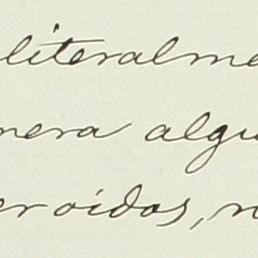 literalme
nera algu
eroidos, n